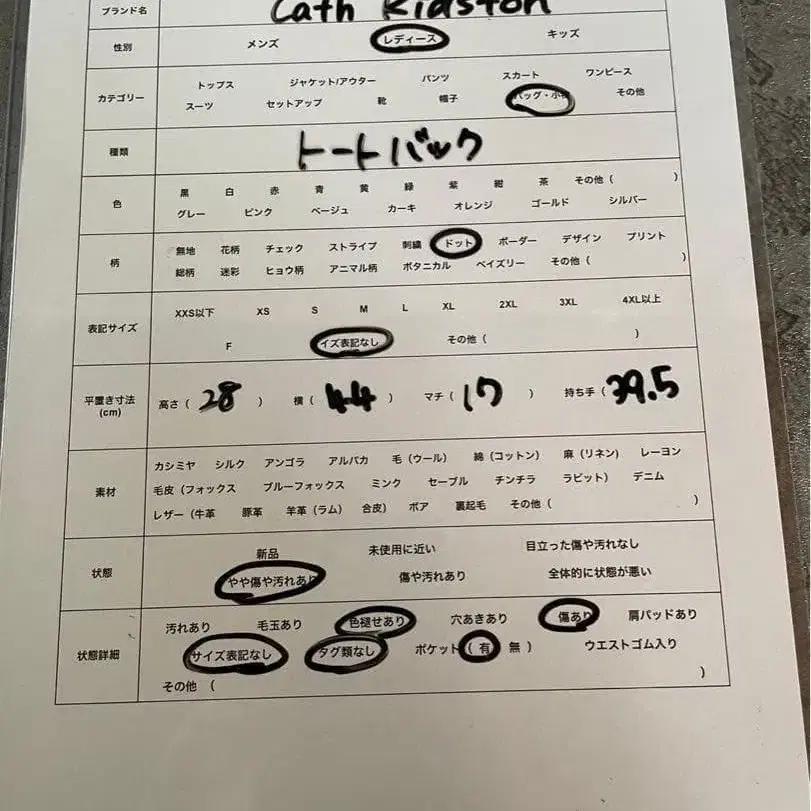 ブランド名 Cath Kidston
性別 メンズ レディース キッズ
トップス ジャケット/アウター パンツ スカート ワンピース
カテゴリー
スーツ セットアップ 靴 帽子 バッグ・小物 その他
種類 トートバック
黒 白 赤 青 黄 緑 紫 紺 茶 その他 ( )
色
グレー ピンク ベージュ カーキ オレンジ ゴールド シルバー
無地 花柄 チェック ストライプ 刺繍 ドット ボーダー デザイン プリント
柄
総柄 迷彩 ヒョウ柄 アニマル柄 ボタニカル ペイズリー その他 ( )
XXS以下 XS S M L XL 2XL 3XL 4XL以上
表記サイズ
F イズ表記なし その他 ( )
平置き寸法
(cm)
高さ ( 28 ) 横 ( 44 ) マチ ( 17 ) 持ち手 ( 39.5
カシミヤ シルク アンゴラ アルパカ 毛 (ウール) 綿 (コットン) 麻 (リネン) レーヨン
素材
毛皮 (フォックス ブルーフォックス ミンク セーブル チンチラ ラビット) デニム
レザー (牛革 豚革 羊革 (ラム) 合皮) ボア 裏起毛 その他 ( )
新品 未使用に近い 目立った傷や汚れなし
状態
やや傷や汚れあり 傷や汚れあり 全体的に状態が悪い
汚れあり 毛玉あり 色褪せあり 穴あきあり 傷あり 肩パッドあり
状態詳細
サイズ表記なし タグ類なし ポケット ( 有 無 ) ウエストゴム入り
その他 ( )